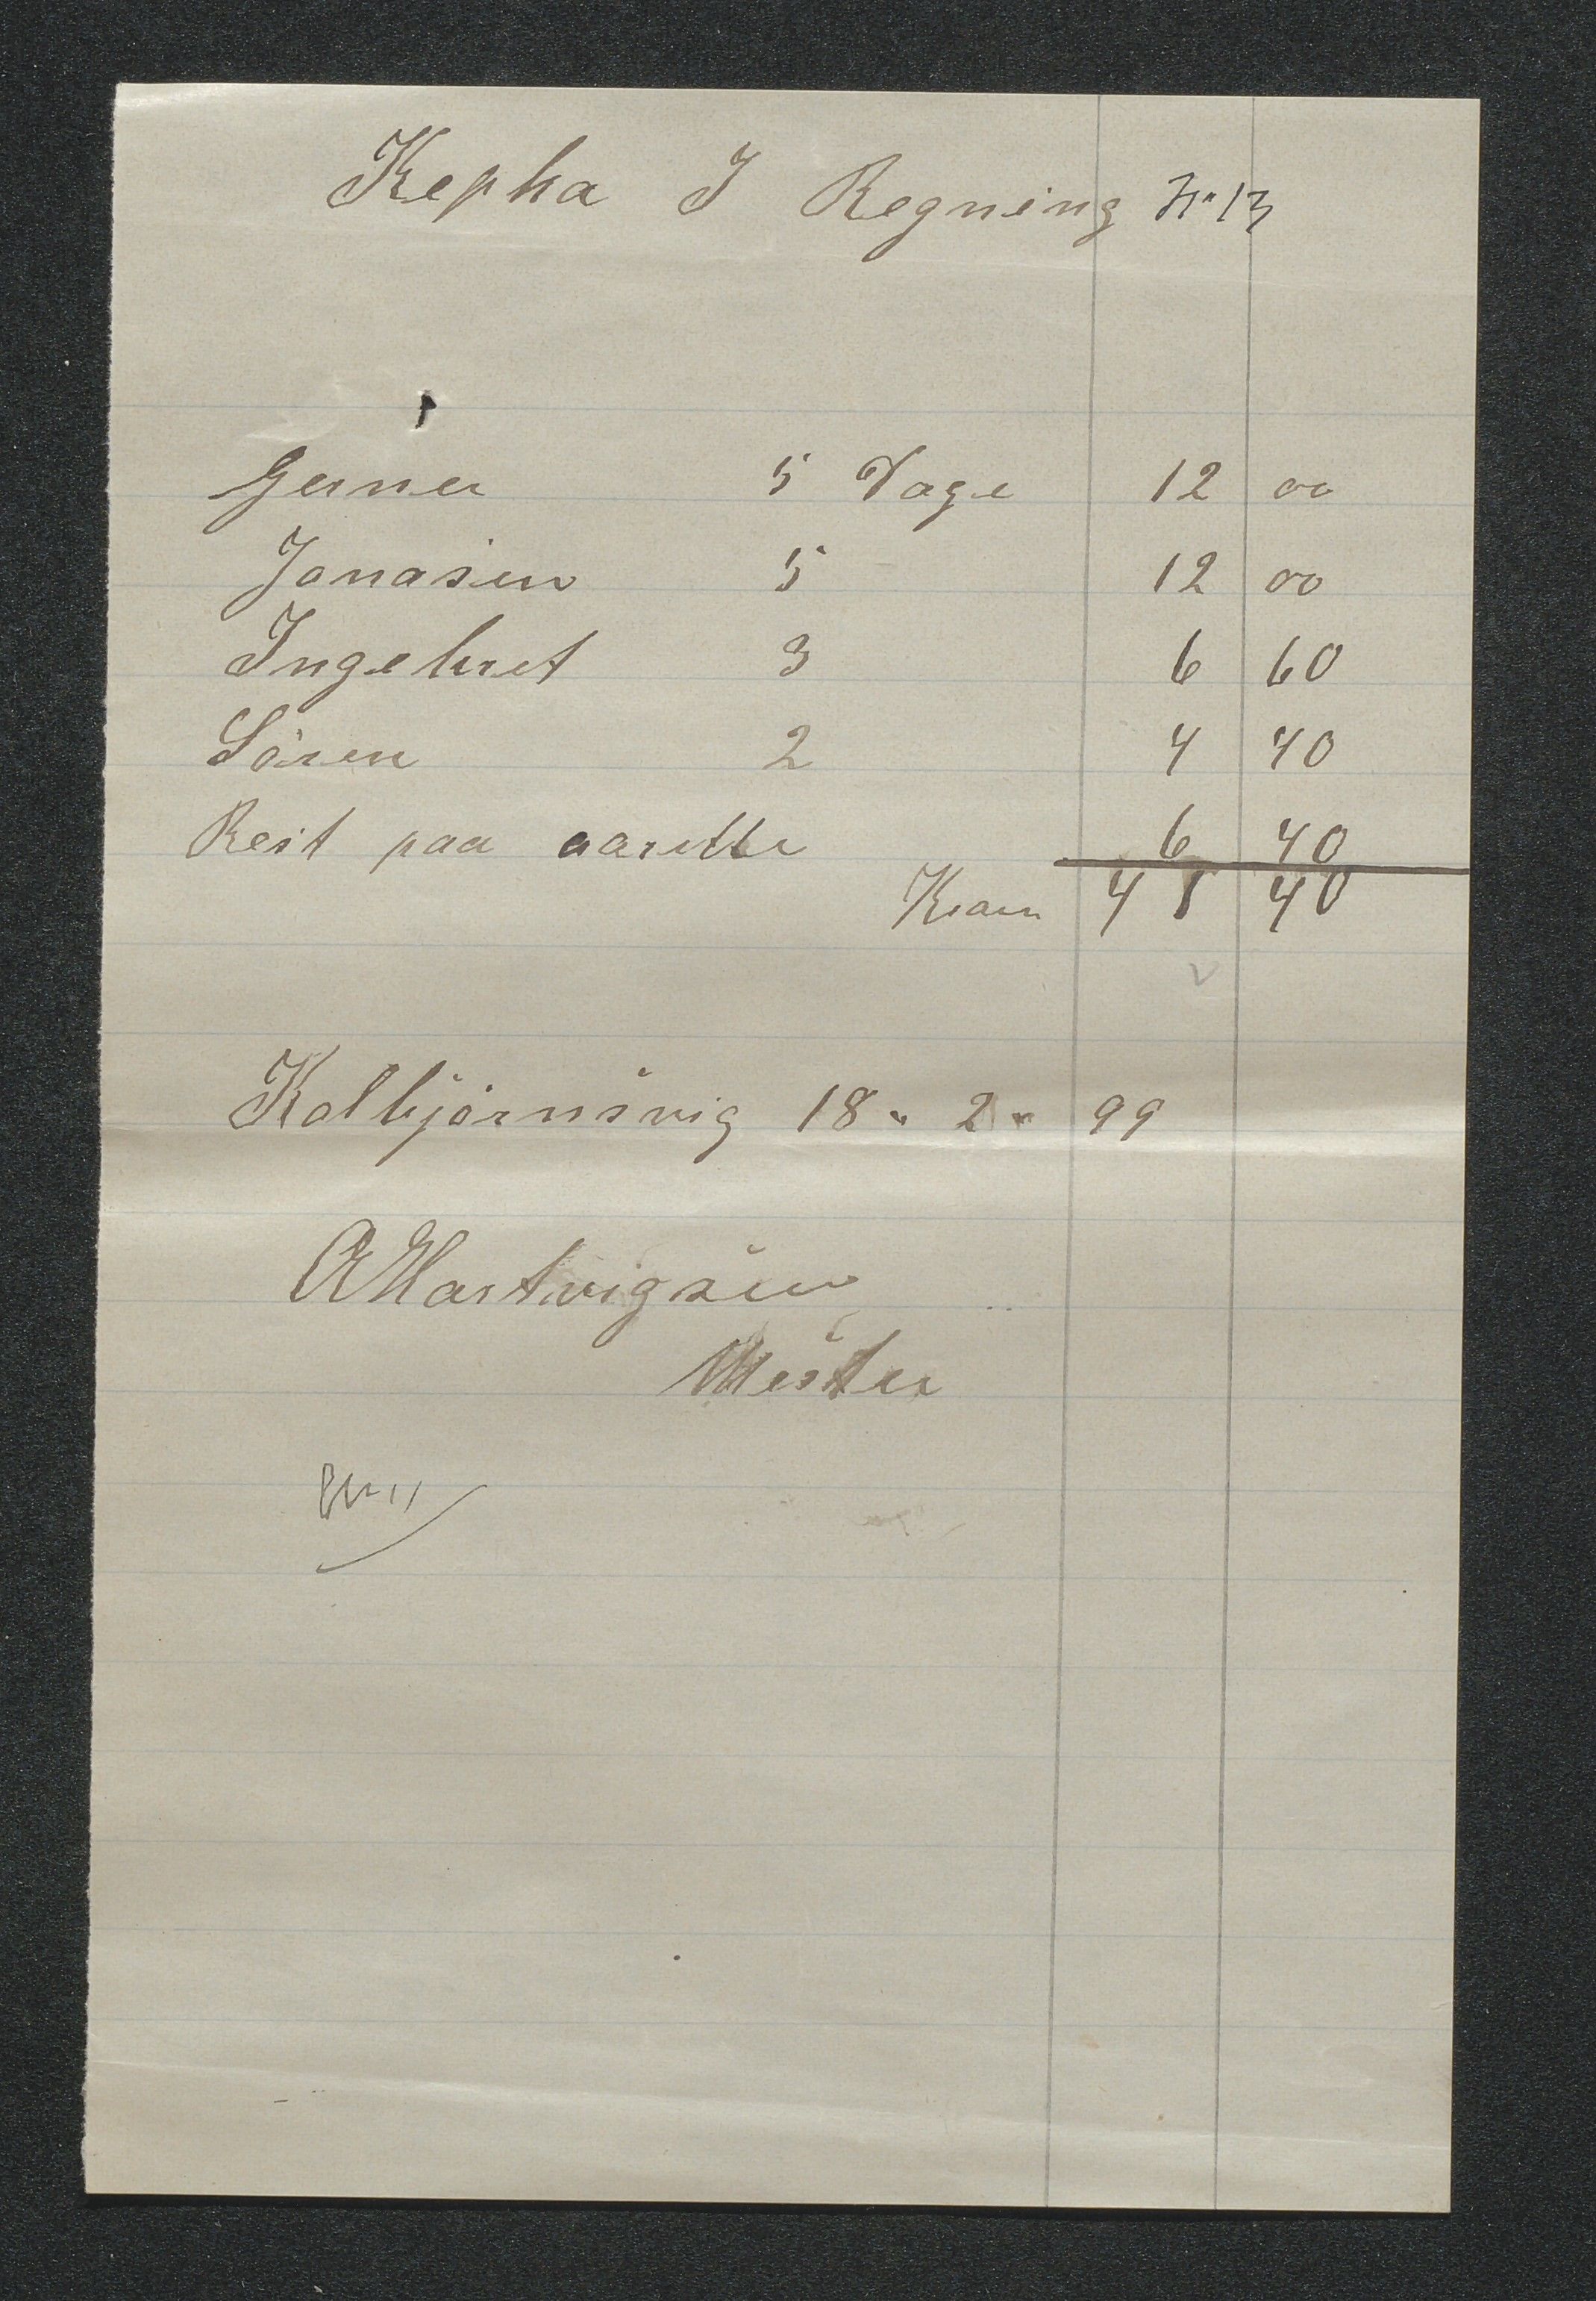 Kepha I Regning No 13
Gerner 5 Dage 12 00
Jonasen 5 12 00
Ingebret 3 6 60
Sören 2 4 40
Rest paa 6 40
41 40
Kolbjörnsvig 18 " 2 " 99
AHartvigsen
Mester